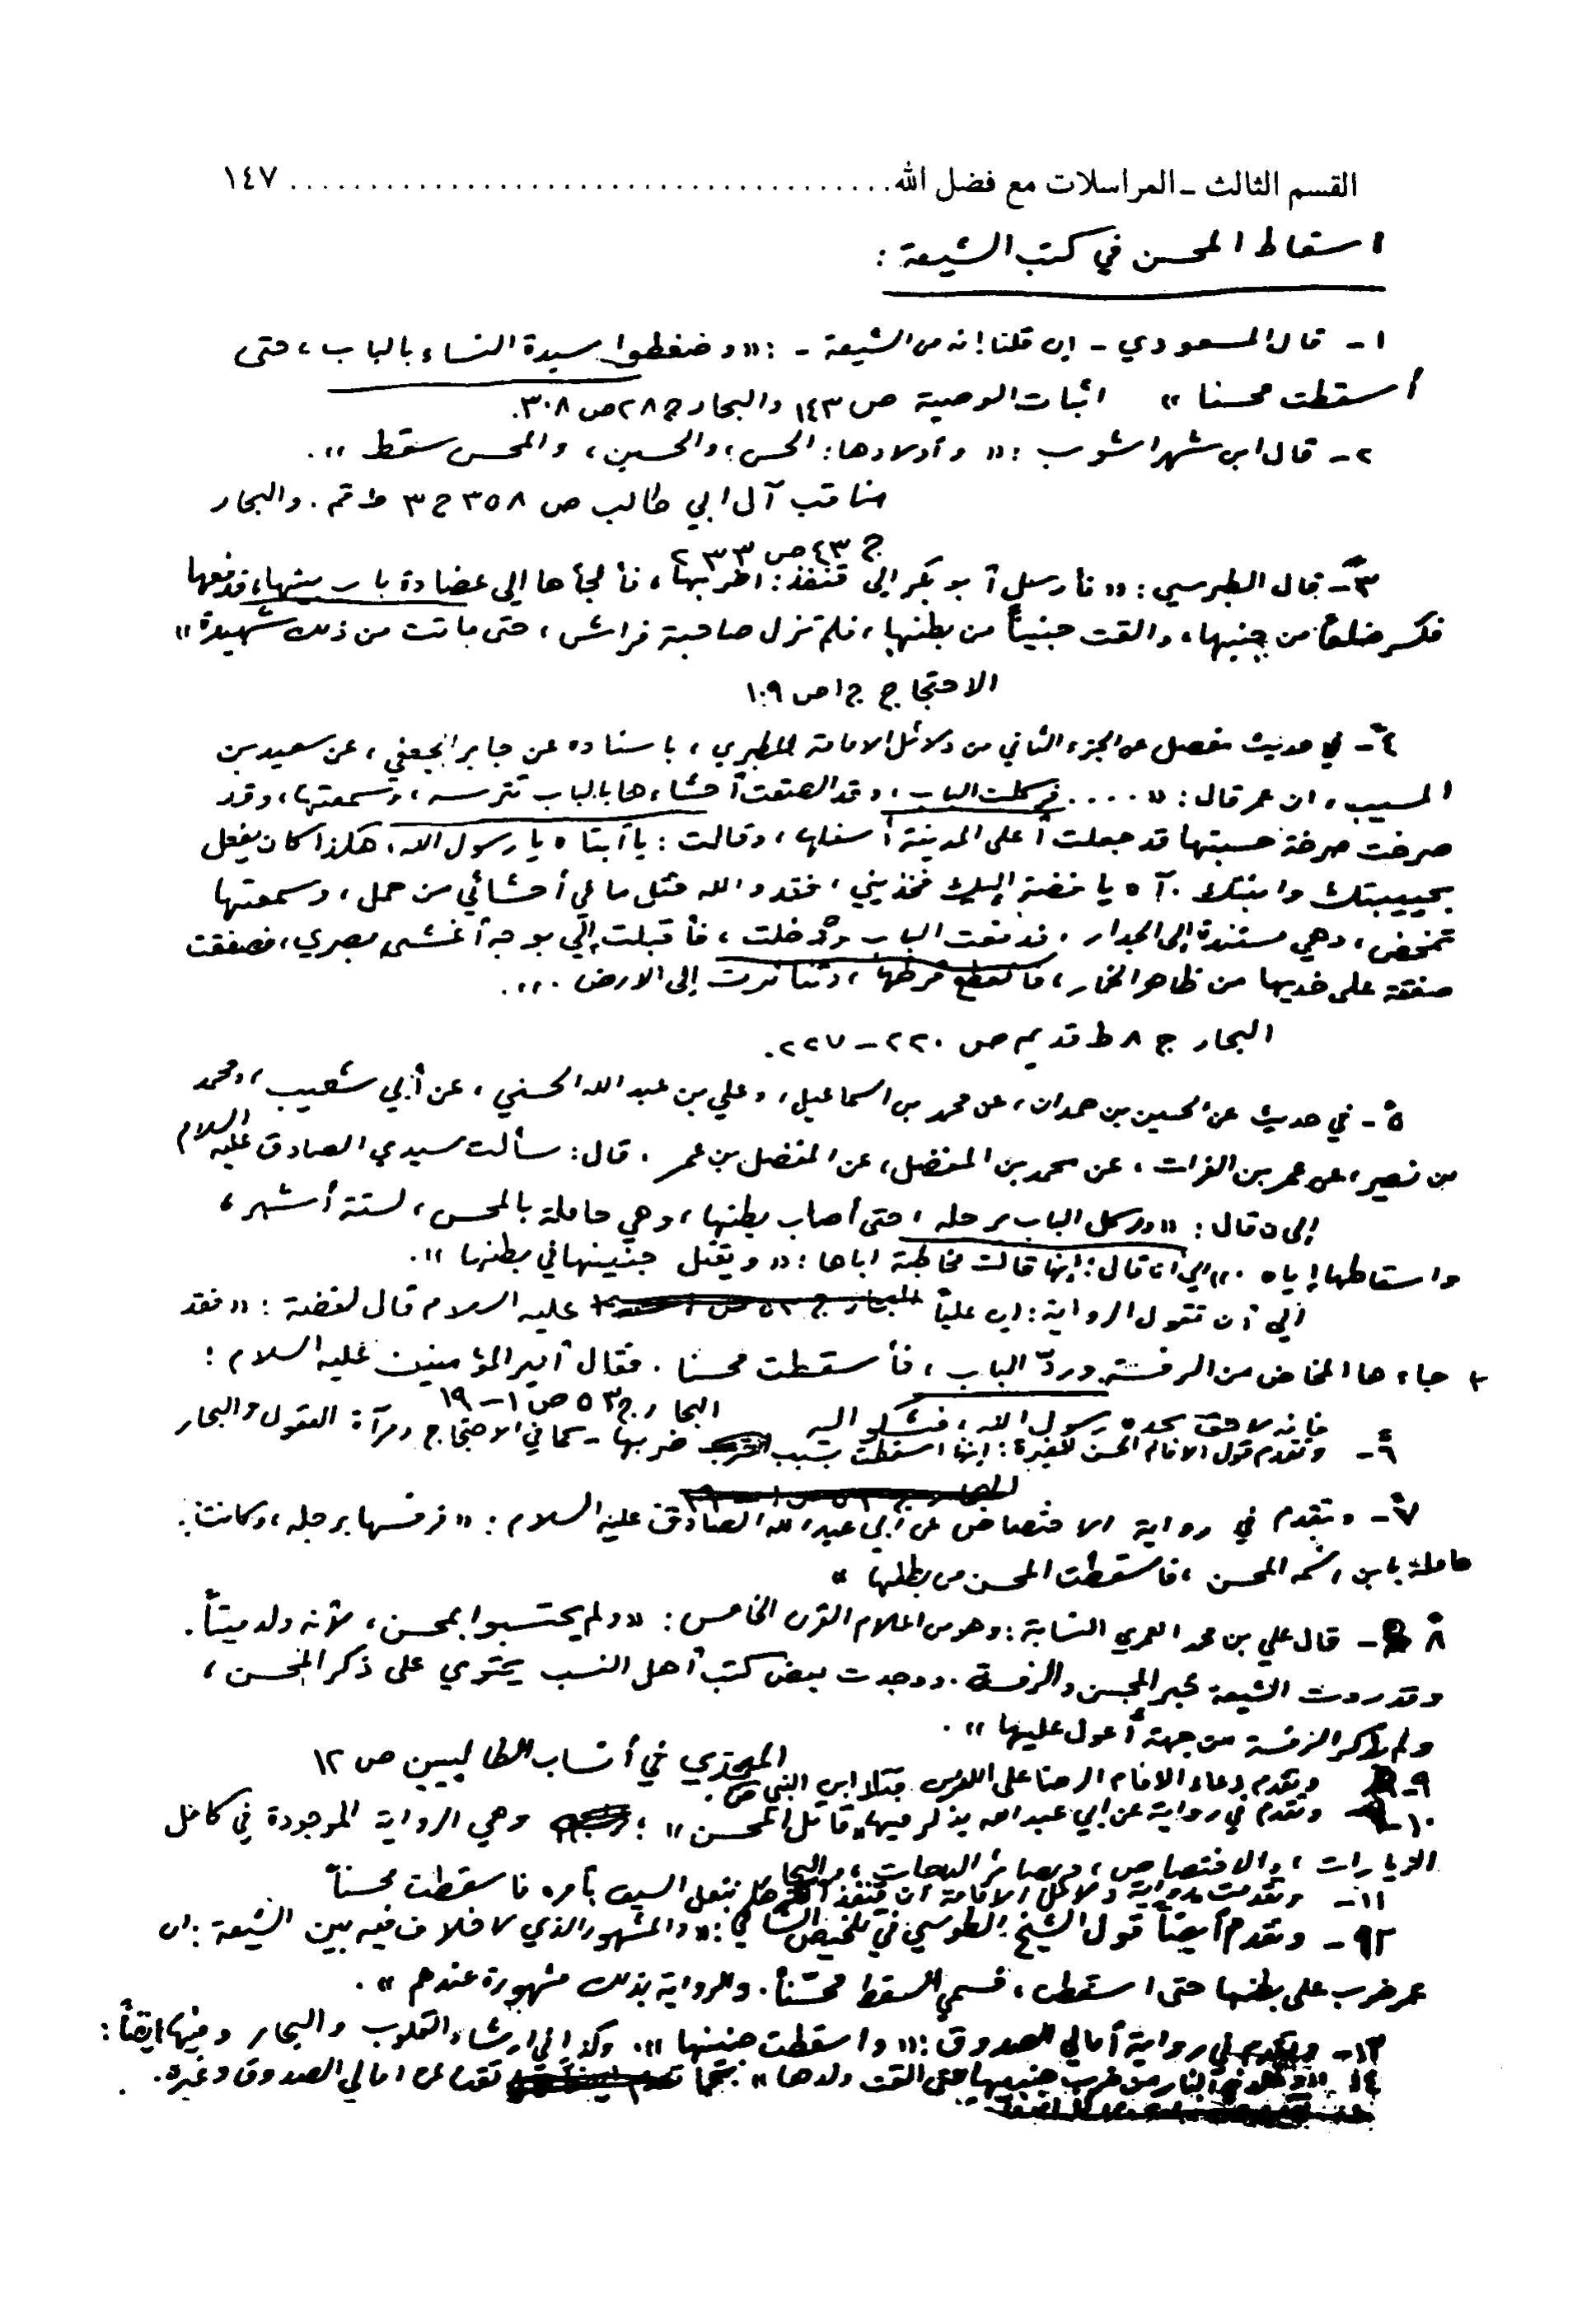 القسم الثالث ـ المراسلات مع فضل الله ........................................ ١٤٧
اسقاط المحسن في كتب الشيعة :
١ - قال المسعودي - إن قلنا إنه من الشيعة - : «وضغطوا سيدة النساء بالباب، حتى
أسقطت محسنا» اثبات الوصية ص ١٤٣ والبحار ج ٢٨ ص ٣٠٨.
٢ - قال ابن شهراشوب : «وأولادها: الحسن، والحسين، والمحسن سقط».
مناقب آل ابي طالب ص ٣٥٨ ج ٣ ط قم. والبحار
ج ٤٣ ص ٢٣٣
٣ - قال الطبرسي : «فأرسل أبو بكر إلى قنفذ: اضربها، فألجأها إلى عضادة باب بيتها، فدفعها
فكسر ضلعاً من جنبها، وألقت جنيناً من بطنها، فلم تزل صاحبة فراش، حتى ماتت من ذلك شهيدة»
الاحتجاج ج ١ ص ١٠٩
٤ - في حديث مفصل عن الجزء الثاني من دلائل الامامة للطبري، باسناده عن جابر الجعفي، عن سعيد بن
المسيب، ان عمر قال: «.... فركلت الباب، وقد الصقت أحشاءها بالباب تترسه، وسمعتها، وقد
صرخت صرخة حسبتها قد جعلت أعلى المدينة أسفلها، وقالت: يا أبتاه يا رسول الله، هكذا كان يفعل
بحبيبتك وابنتك. آه يا فضة إليك فخذيني، فقد والله قتل ما في أحشائي من حمل، وسمعتها
تمخض، وهي مستندة إلى الجدار، فدفعت الباب ودخلت، فأقبلت إلي بوجه أغشى بصري، فصفقت
صفقة على خديها من ظاهر الخمار، فانقطع قرطها، وتناثرت إلى الارض..».
البحار ج ٨ ط قديم ص ٢٢٠ - ٢٢٧.
٥ - في حديث عن الحسين بن حمدان، عن محمد بن اسماعيل، وعلي بن عبد الله الحسني، عن أبي شعيب، ومحمد
بن نصير، عن عمر بن الفرات، عن محمد بن المفضل، عن المفضل بن عمر، قال: سألت سيدي الصادق عليه السلام
إلى ان قال: «وركل الباب برجله، حتى أصاب بطنها، وهي حاملة بالمحسن، لستة أشهر،
واسقاطها إياه.» إلى ان قال: إنها قالت مخاطبة اباها: «ويقتل جنينها في بطنها».
إلى أن تقول الرواية: إن علياً عليه السلام قال لفضة: «فقد
جاءها المخاض من الرفسة ورد الباب، فأسقطت محسنا. فقال أمير المؤمنين عليه السلام :
فإنه لاحق بجده رسول الله، فشكوا إليه البحار ج ٥٣ ص ١ - ١٩
٦ - وتقدم قول الامام الحسن للمغيرة: إنها اسقطت بسبب ضربها - كما في الاحتجاج ومرآة العقول والبحار
٧ - وتقدم في رواية الاختصاص عن أبي عبد الله الصادق عليه السلام : «فرفسها برجله، وكانت
حاملة بابن اسمه المحسن، فأسقطت المحسن من بطنها»
٨ - قال علي بن محمد العمري النسابة: وهو من اعلام القرن الخامس : «ولم يحتسبوا بمحسن، لأنه ولد ميتاً.
وقد روت الشيعة خبر المحسن والرفسة. ووجدت بعض كتب أهل النسب يحتوي على ذكر المحسن،
ولم يذكر الرفسة من جهة أعول عليها».
المجدي في أنساب الطالبيين ص ١٢
٩ - وتقدم دعاء الامام الرضا على الذين قتلا ابن النبي ص.
١٠ - وتقدم في رواية عن ابي عبد الله يذكر فيها «قاتل المحسن»؛ وهي الرواية الموجودة في كامل
الزيارات، والاختصاص، وبصائر الدرجات، والبحار
١١ - وتقدمت رواية دلائل الامامة ان قنفذاً بنعل السيف بأمره فأسقطت محسناً
١٢ - وتقدم أيضاً قول الشيخ الطوسي في تلخيص الشافي: «والمشهور الذي لا خلاف فيه بين الشيعة: ان
عمر ضرب على بطنها حتى اسقطت، فسمي السقط محسّناً. والرواية بذلك مشهورة عندهم».
١٣ - في رواية أمالي الصدوق: «واسقطت جنينها». وكذا في ارشاد القلوب والبحار وفيها ايضاً:
١٤ في النار من ضرب جنبيها حتى القت ولدها» تقدم عن امالي الصدوق وغيره.